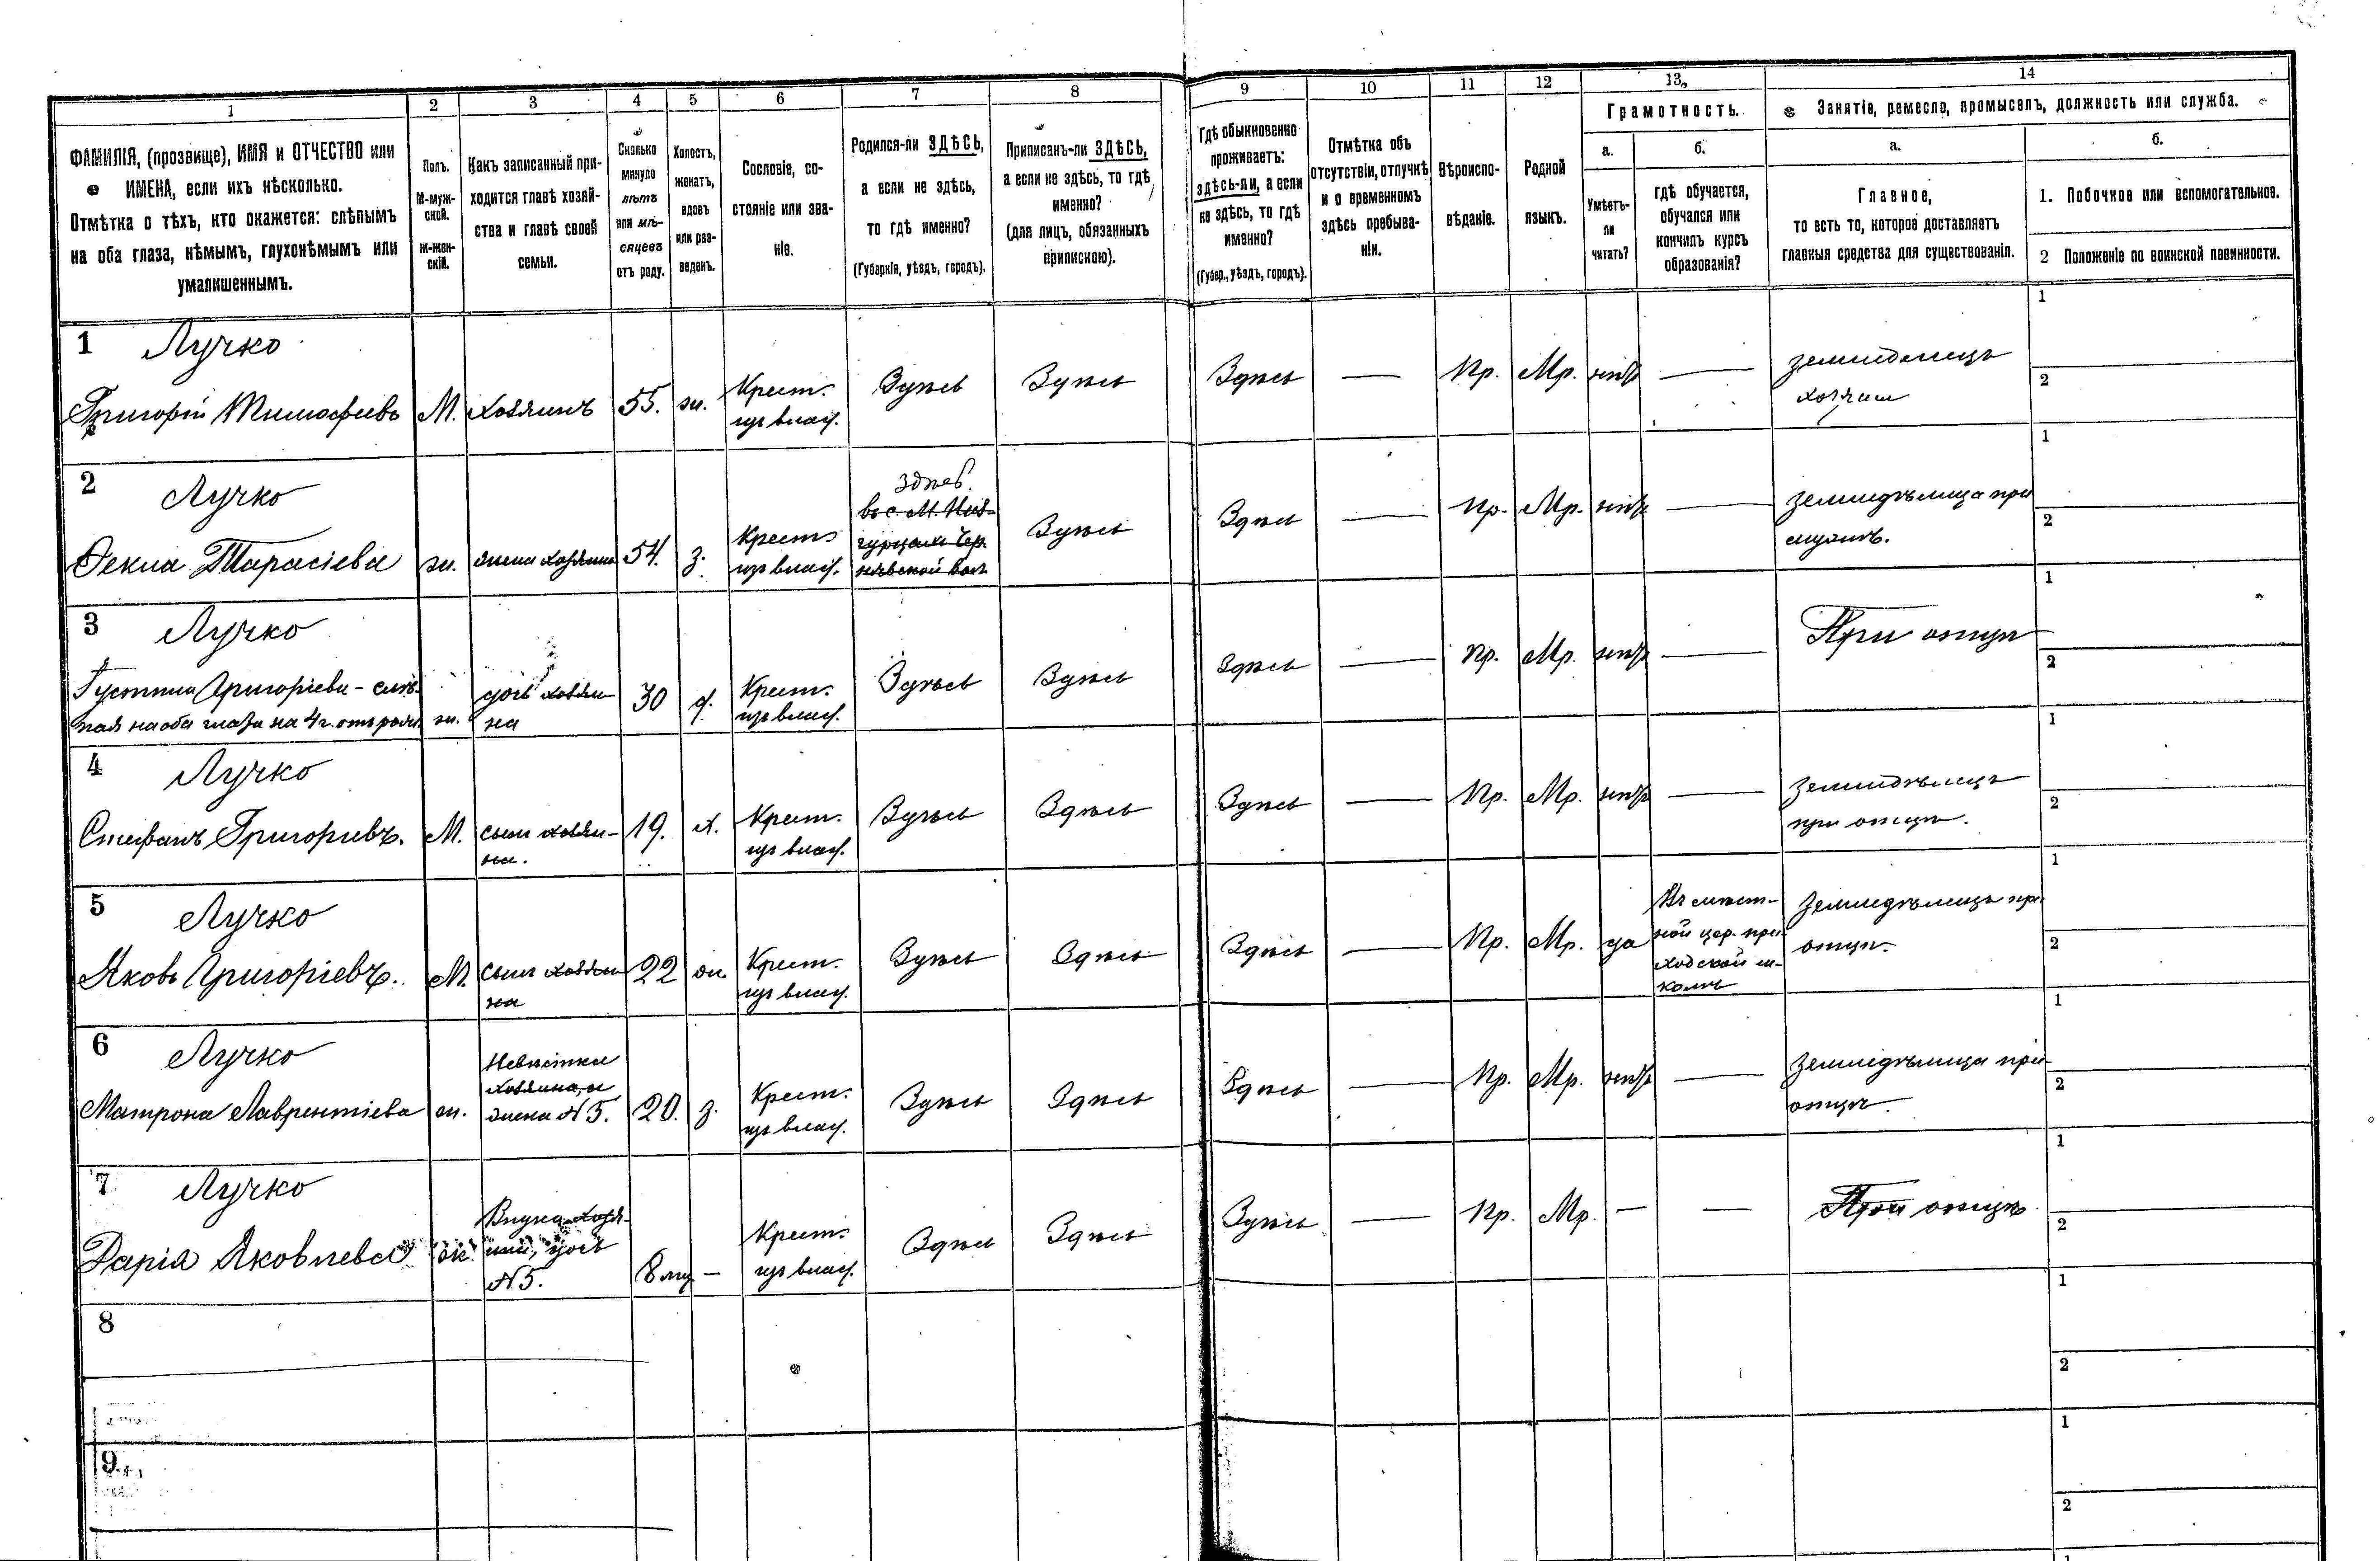 1 2 3 4 5 6 7 8 9 10 11 12 13 14
ФАМИЛІЯ, (прозвище), ИМЯ и ОТЧЕСТВО или
ИМЕНА, если ихъ нѣсколько.
Отмѣтка о тѣхъ, кто окажется: слѣпымъ
на оба глаза, нѣмымъ, глухонѣмымъ или
умалишеннымъ.
Полъ.
М-муж-
ской.
Ж-жен-
скій.
Какъ записанный при-
ходится главѣ хозяй-
ства и главѣ своей
семьи.
Сколько
минуло
лѣтъ
или мѣ-
сяцевъ
отъ роду.
Холостъ,
женатъ,
вдовъ
или раз-
веденъ.
Сословіе, со-
стояніе или зва-
ніе.
Родился-ли ЗДѢСЬ,
а если не здѣсь,
то гдѣ именно?
(Губернія, уѣздъ, городъ).
Приписанъ-ли ЗДѢСЬ,
а если не здѣсь, то гдѣ
именно?
(для лицъ, обязанныхъ
припискою).
Гдѣ обыкновенно
проживаетъ:
здѣсь-ли, а если
не здѣсь, то гдѣ
именно?
(Губер., уѣздъ, городъ).
Отмѣтка объ
отсутствіи, отлучкѣ
и о временномъ
здѣсь пребыва-
ніи.
Вѣроиспо-
вѣданіе.
Родной
языкъ.
Грамотность.
а.
Умѣетъ-
ли
читать?
б.
гдѣ обучается,
обучался или
кончилъ курсъ
образованія?
Занятіе, ремесло, промыселъ, должность или служба.
а.
Главное,
то есть то, которое доставляетъ
главныя средства для существованія.
б.
1. Побочное или вспомогательное.
2 Положеніе по воинской повинности.
1 Лучко
Григорій Тимофеевъ
М.
хозяинъ
55.
ж.
Крест.
изъ влад.
Здѣсь
Здѣсь
Здѣсь
—
Пр.
Мр.
нѣтъ
—
земледелецъ
хозяин
1
2
2 Лучко
Фекла Тарасіева
ж.
жена хозяина
54.
з.
Крест.
изъ влад.
Здѣсь
Здѣсь
Здѣсь
—
Пр.
Мр.
нѣтъ
—
земледѣлица при
мужѣ.
1
2
3 Лучко
Густина Григоріева - слѣ-
пая на оба глаза на 4 г. отъ рожд.
ж.
дочь хозяи
на
30
д.
Крест.
изъ влад.
Здѣсь
Здѣсь
Здѣсь
—
Пр.
Мр.
нѣтъ
—
При отцѣ
1
2
4 Лучко
Стефанъ Григорьевъ.
М.
сынъ хозяи-
на.
19.
х.
Крест.
изъ влад.
Здѣсь
Здѣсь
Здѣсь
—
Пр.
Мр.
нѣтъ
—
земледѣлецъ
при отцѣ.
1
2
5 Лучко
Яковъ Григоріевъ.
М.
сынъ хозяи
на
22
ж.
Крест.
изъ влад.
Здѣсь
Здѣсь
Здѣсь
—
Пр.
Мр.
да
Въ мѣст-
ной цер. при-
ходской ш-
колѣ
Земледѣлецъ при
отцѣ.
1
2
6 Лучко
Матрона Лаврентіева
ж.
Невѣстка
хозяина, а
жена № 5.
20.
з.
Крест.
изъ влад.
Здѣсь
Здѣсь
Здѣсь
—
Пр.
Мр.
нѣтъ
—
земледѣлица при
отцѣ.
1
2
7 Лучко
Дарія Яковлева
ж.
Внука хозя-
ина, дочь
№ 5.
8 мц
—
Крест.
изъ влад.
Здѣсь
Здѣсь
Здѣсь
—
Пр.
Мр.
—
—
При отцѣ
1
2
8
1
2
9
1
2
1